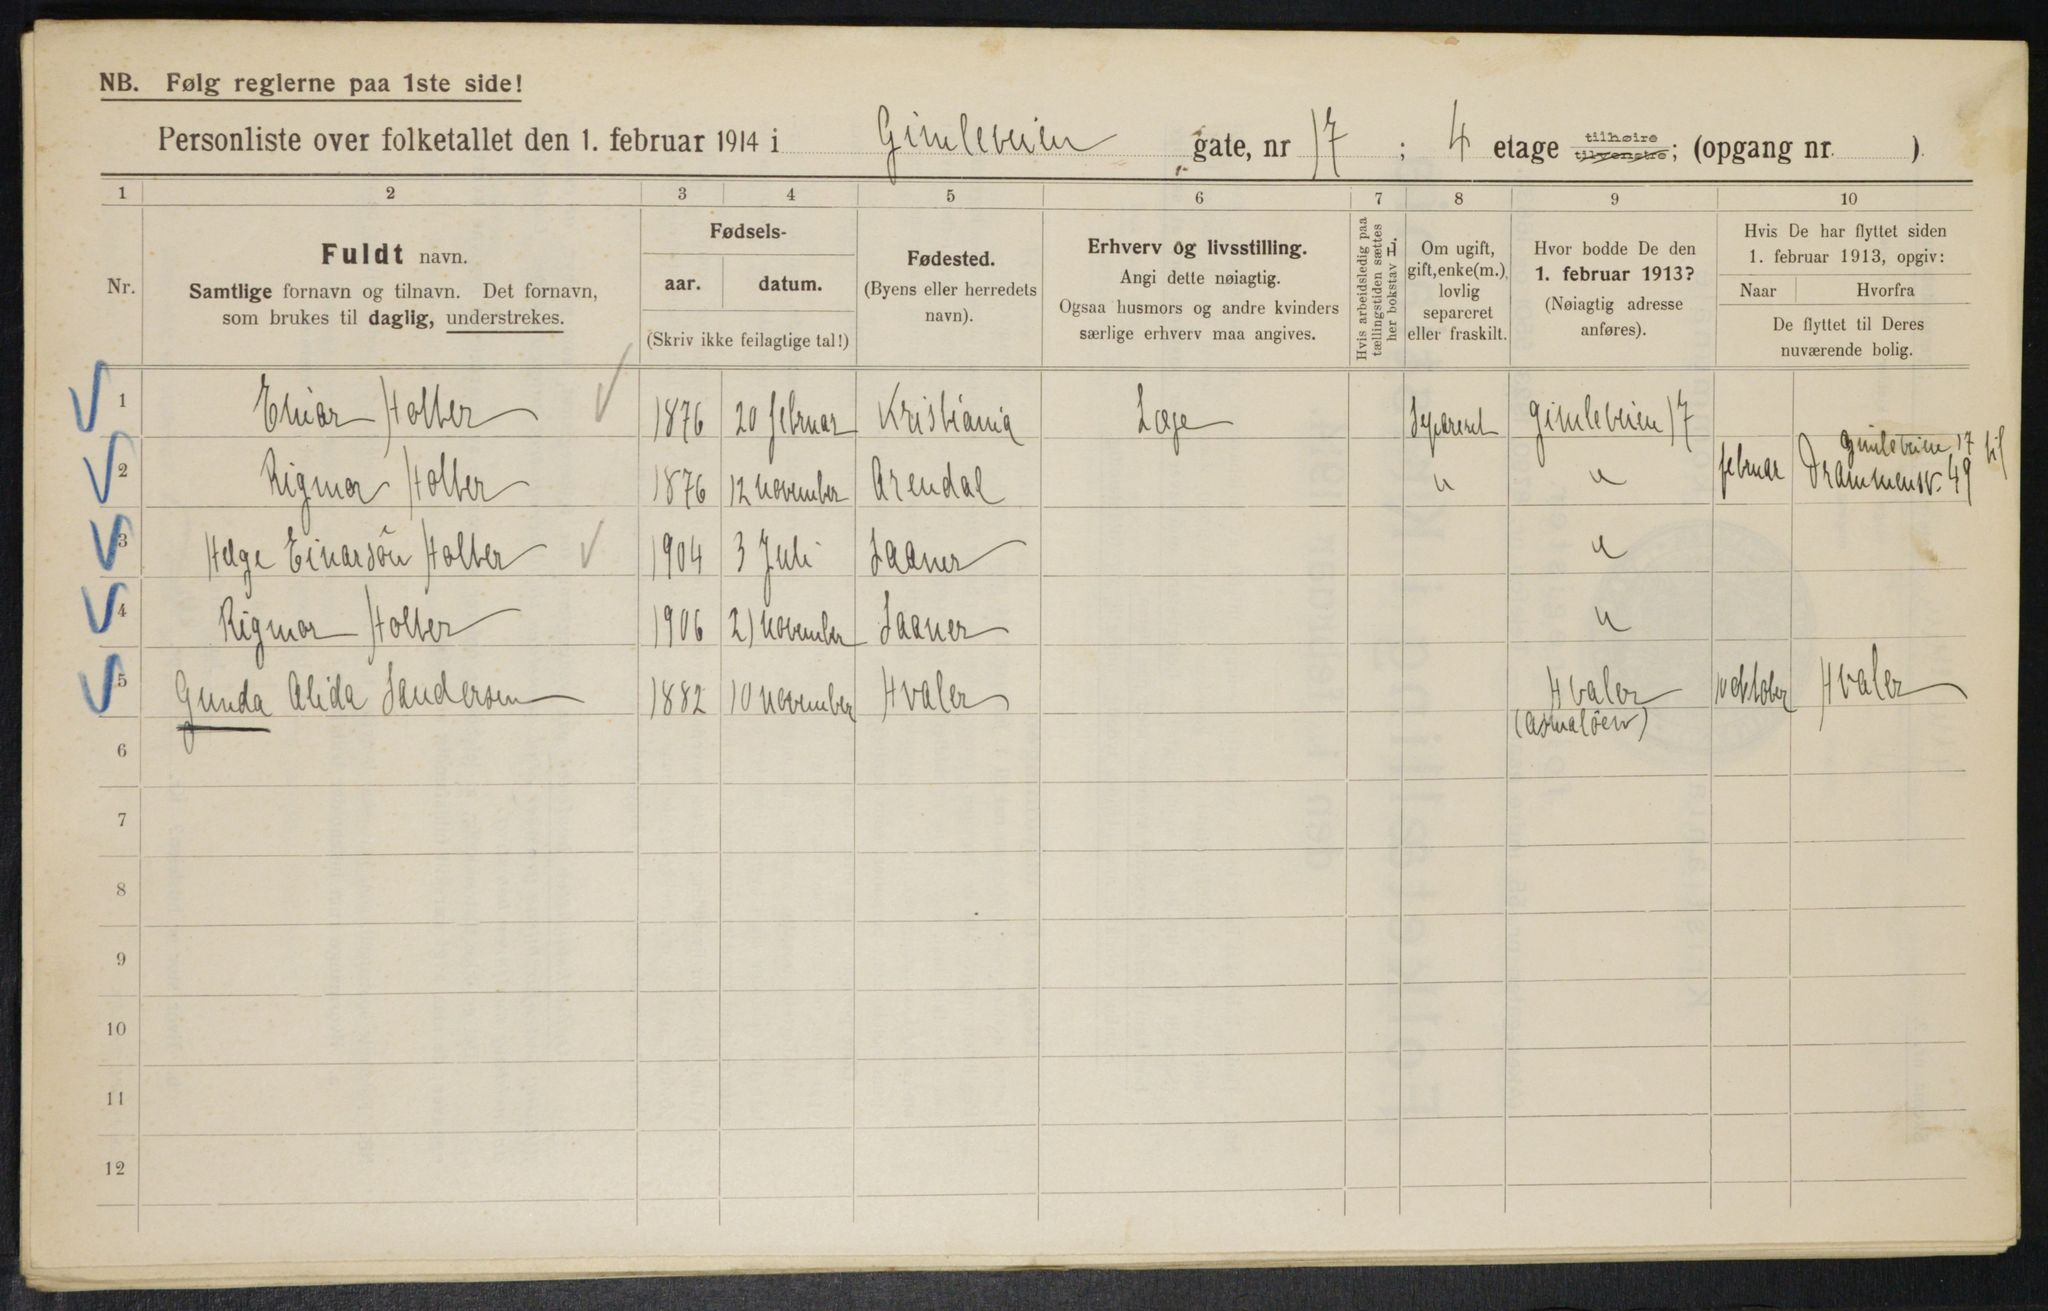 NB. Følg reglerne paa 1ste side!
Personliste over folketallet den 1. februar 1914 i Gimleveien gate, nr 17; 4 etage tilhøire tilvenstre; (opgang nr. )
1 2 3 4 5 6 7 8 9 10
Nr.
Fuldt navn.
Samtlige fornavn og tilnavn. Det fornavn,
som brukes til daglig, understrekes.
Fødsels-
aar. datum.
(Skriv ikke feilagtige tal!)
Fødested.
(Byens eller herredets
navn).
Erhverv og livsstilling.
Angi dette nøiagtig.
Ogsaa husmors og andre kvinders
særlige erhverv maa angives.
Hvis arbeidsledig paa
tællingstiden sættes
her bokstav H.
Om ugift,
gift, enke(m.),
lovlig
separeret
eller fraskilt.
Hvor bodde De den
1. februar 1913?
(Nøiagtig adresse
anføres).
Hvis De har flyttet siden
1. februar 1913, opgiv:
Naar Hvorfra
De flyttet til Deres
nuværende bolig.
1 Einar Holter 1876 20 februar Kristiania Læge Separeret Gimleveien 17
Gimleveien 17 til
2 Rigmor Holter 1876 12 november Arendal " " februar Drammensv. 49
3 Helge Einarsön Holter 1904 3 Juli Saaner "
4 Rigmor Holter 1906 21 november Saaner "
5 Gunda Alida Sandersen 1882 10 november Hvaler Hvaler oktober Hvaler
(Asmalöen)
6
7
8
9
10
11
12